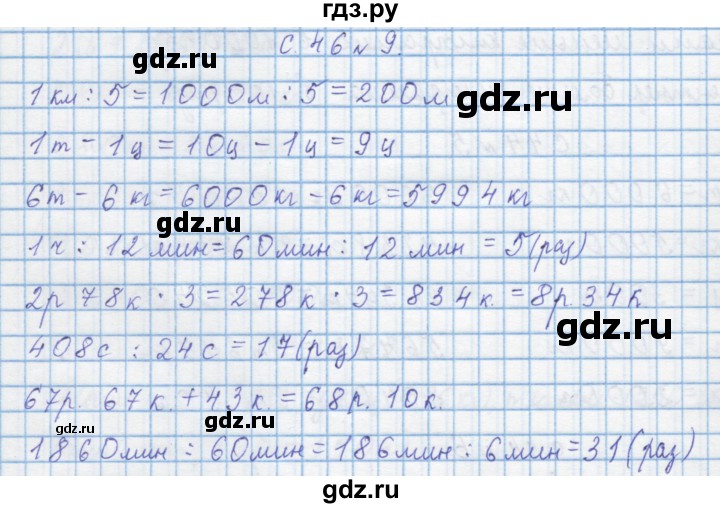 гдз.ру
С. 46 N 9.
gdz.ru gdz.ru
1 км : 5 = 1000м : 5 = 200м
1т - 1ц = 10ц - 1ц = 9ц
6т - 6 кг = 6000кг - 6кг = 5994кг
gdz.ru gdz.ru
1ч : 12 мин = 60мин : 12 мин = 5(раз)
2р 78к · 3 = 278к · 3 = 834к. = 8р. 34к.
gdz.ru
408с : 24с = 17(раз)
gdz.ru
67р. 67к. + 43к. = 68р. 10к.
gdz.ru
1860мин : 60мин = 186мин : 6мин = 31(раз)
gdz.ru gdz.ru